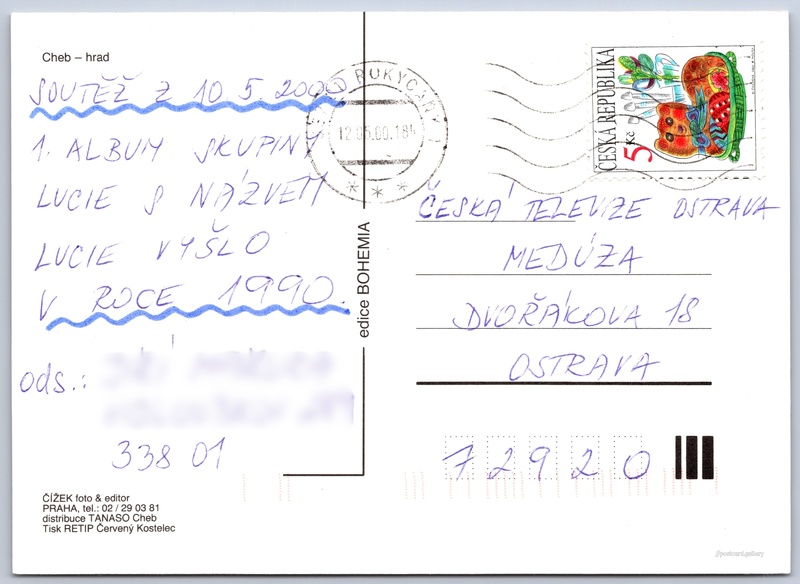 Cheb – hrad
SOUTĚŽ Z 10 5. 2000
1. ALBUM SKUPINY
LUCIE S NÁZVEM
LUCIE VYŠLO
V ROCE 1990.
ods.:
338 01
ČÍŽEK foto & editor
PRAHA, tel.: 02 / 29 03 81
distribuce TANASO Cheb
Tisk RETIP Červený Kostelec
edice BOHEMIA
ROKYCANY
12.05.00.18
* * *
ČESKÁ REPUBLIKA
5 Kč
ČESKÁ TELEVIZE OSTRAVA
MEDÚZA
DVOŘÁKOVA 18
OSTRAVA
72920
//postcard.gallery